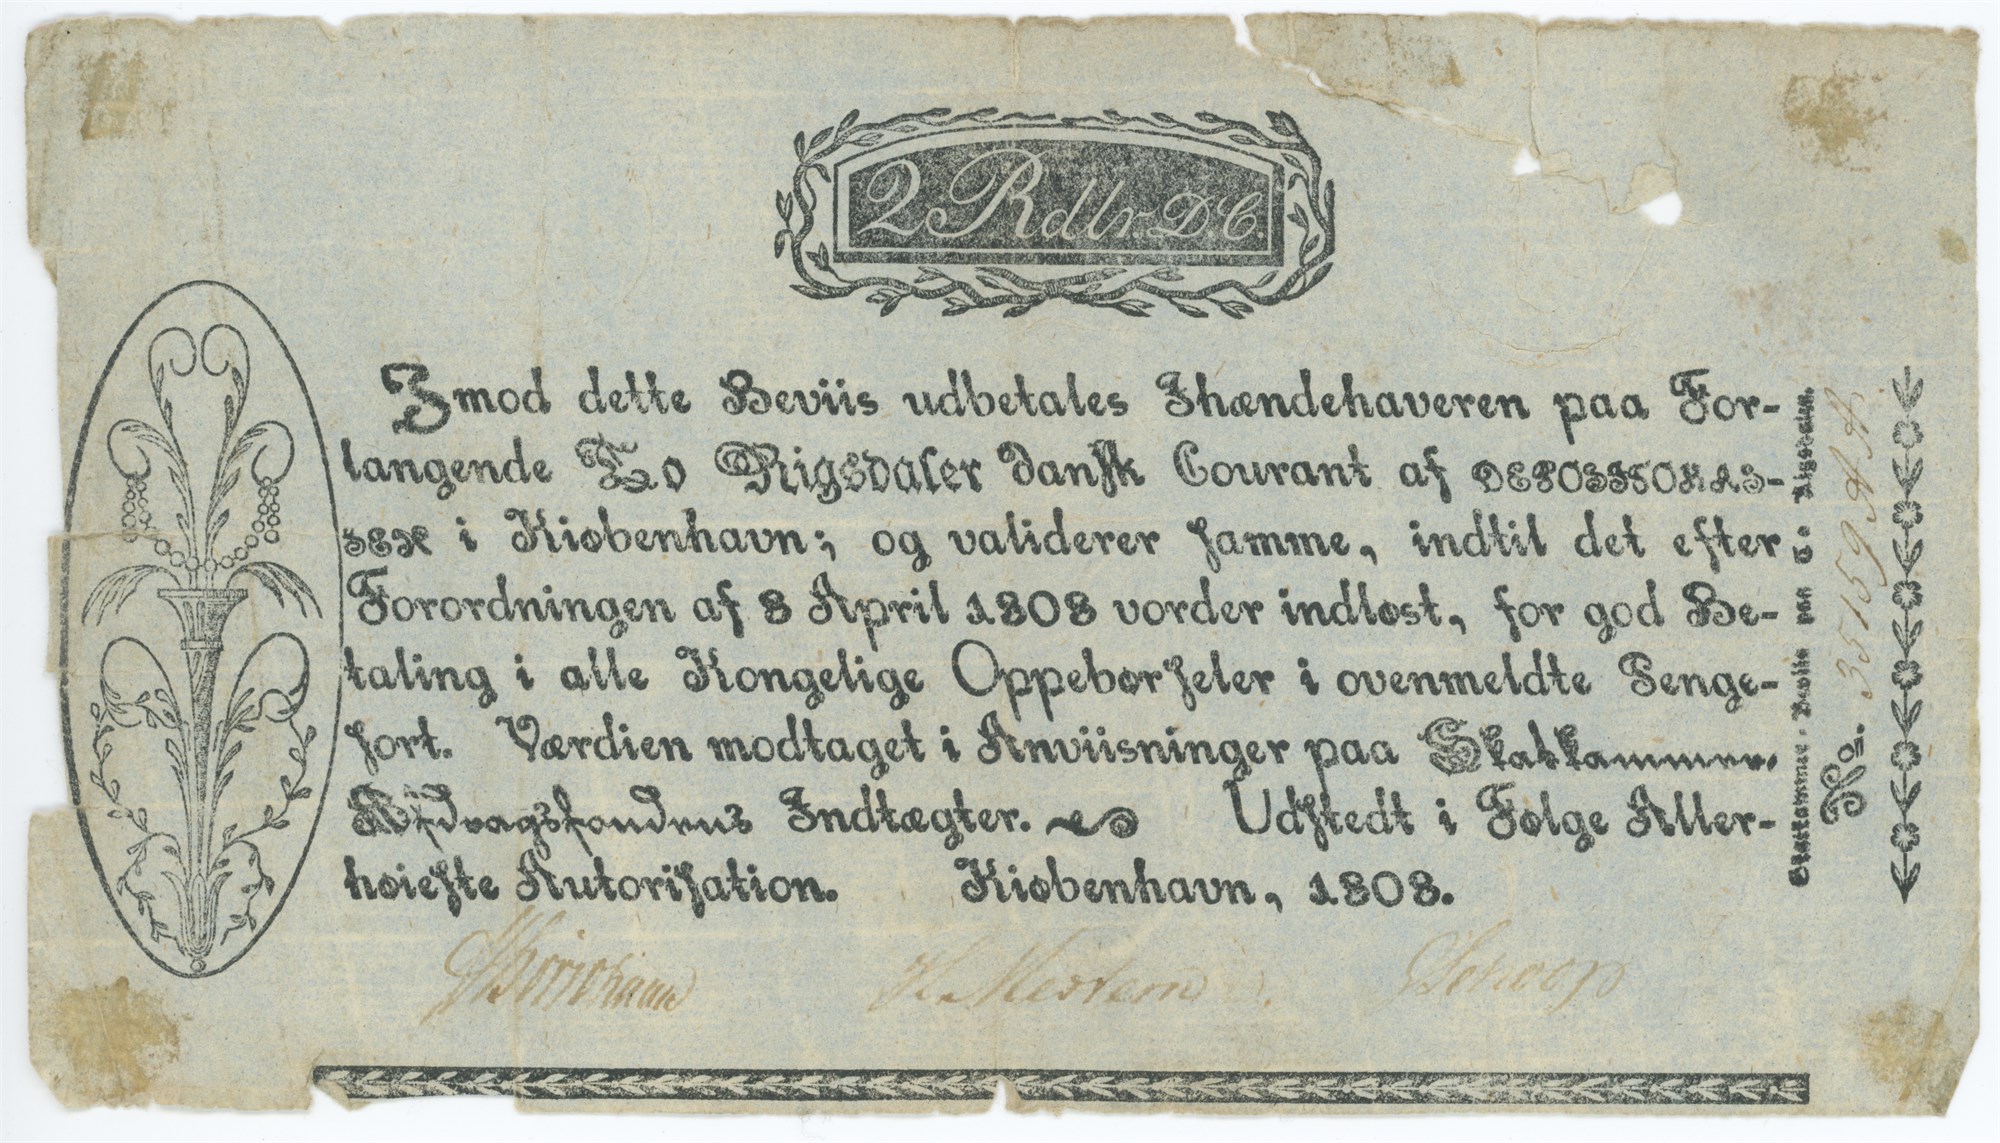 2 Rdlr. D. C.
Imod dette Beviis udbetales Ihændehaveren paa For-
langende To Rigsdaler dansk Courant af DEPOSITOKAS-
SEN i Kiøbenhavn; og validerer samme, indtil det efter
Forordningen af 8 April 1808 vorder indløst, for god Be-
taling i alle Kongelige Oppebørseler i ovenmeldte Penge-
sort. Værdien modtaget i Anviisninger paa Skatkammer-
Afdragsfondens Indtægter. Udstedt i Følge Aller-
høieste Autorisation. Kiøbenhavn, 1808.
Skatkammer-Beviis paa To Rigsdaler.
No. 35159 A A